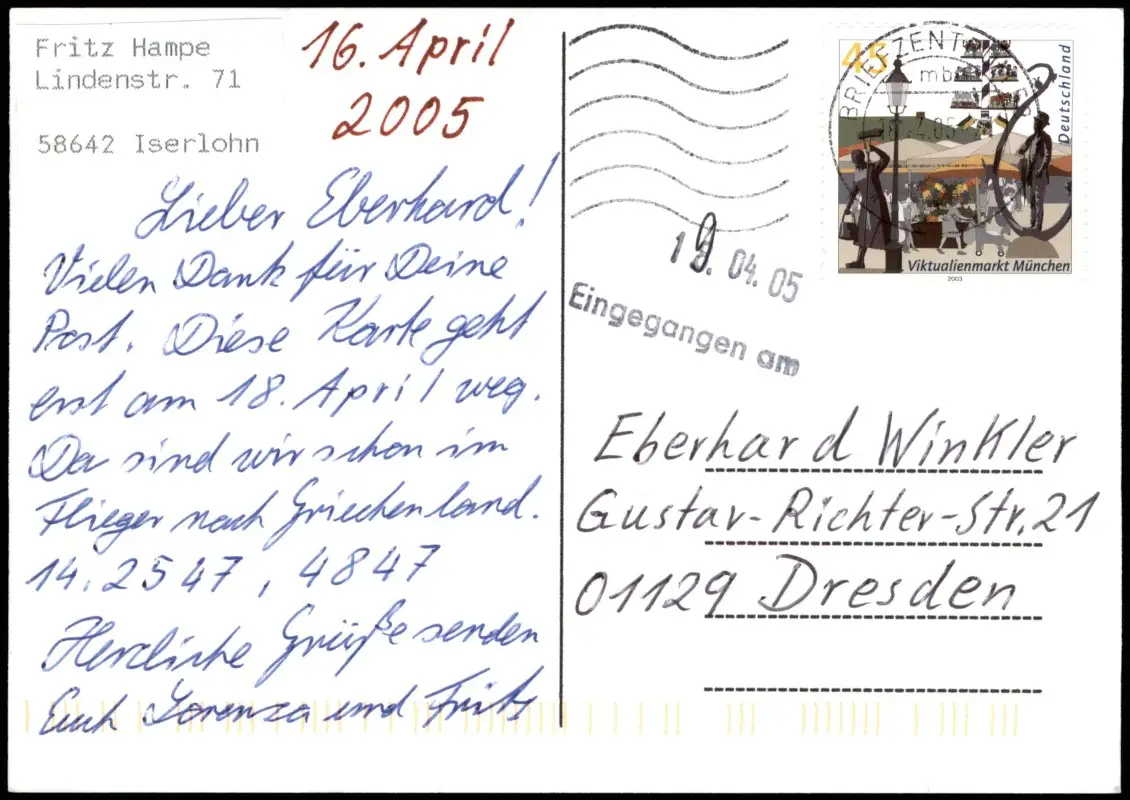 Fritz Hampe
Lindenstr. 71
58642 Iserlohn
16. April
2005
Lieber Eberhard!
Vielen Dank für Deine
Post. Diese Karte geht
erst am 18. April weg.
Da sind wir schon im
Flieger nach Griechenland.
14. 2547, 4847
Herzliche Grüße senden
Euch Lorenza und Fritz
45
Deutschland
Viktualienmarkt München
2003
BRIEFZENTRUM
19.04.05
Eingegangen am
Eberhard Winkler
Gustav-Richter-Str. 21
01129 Dresden